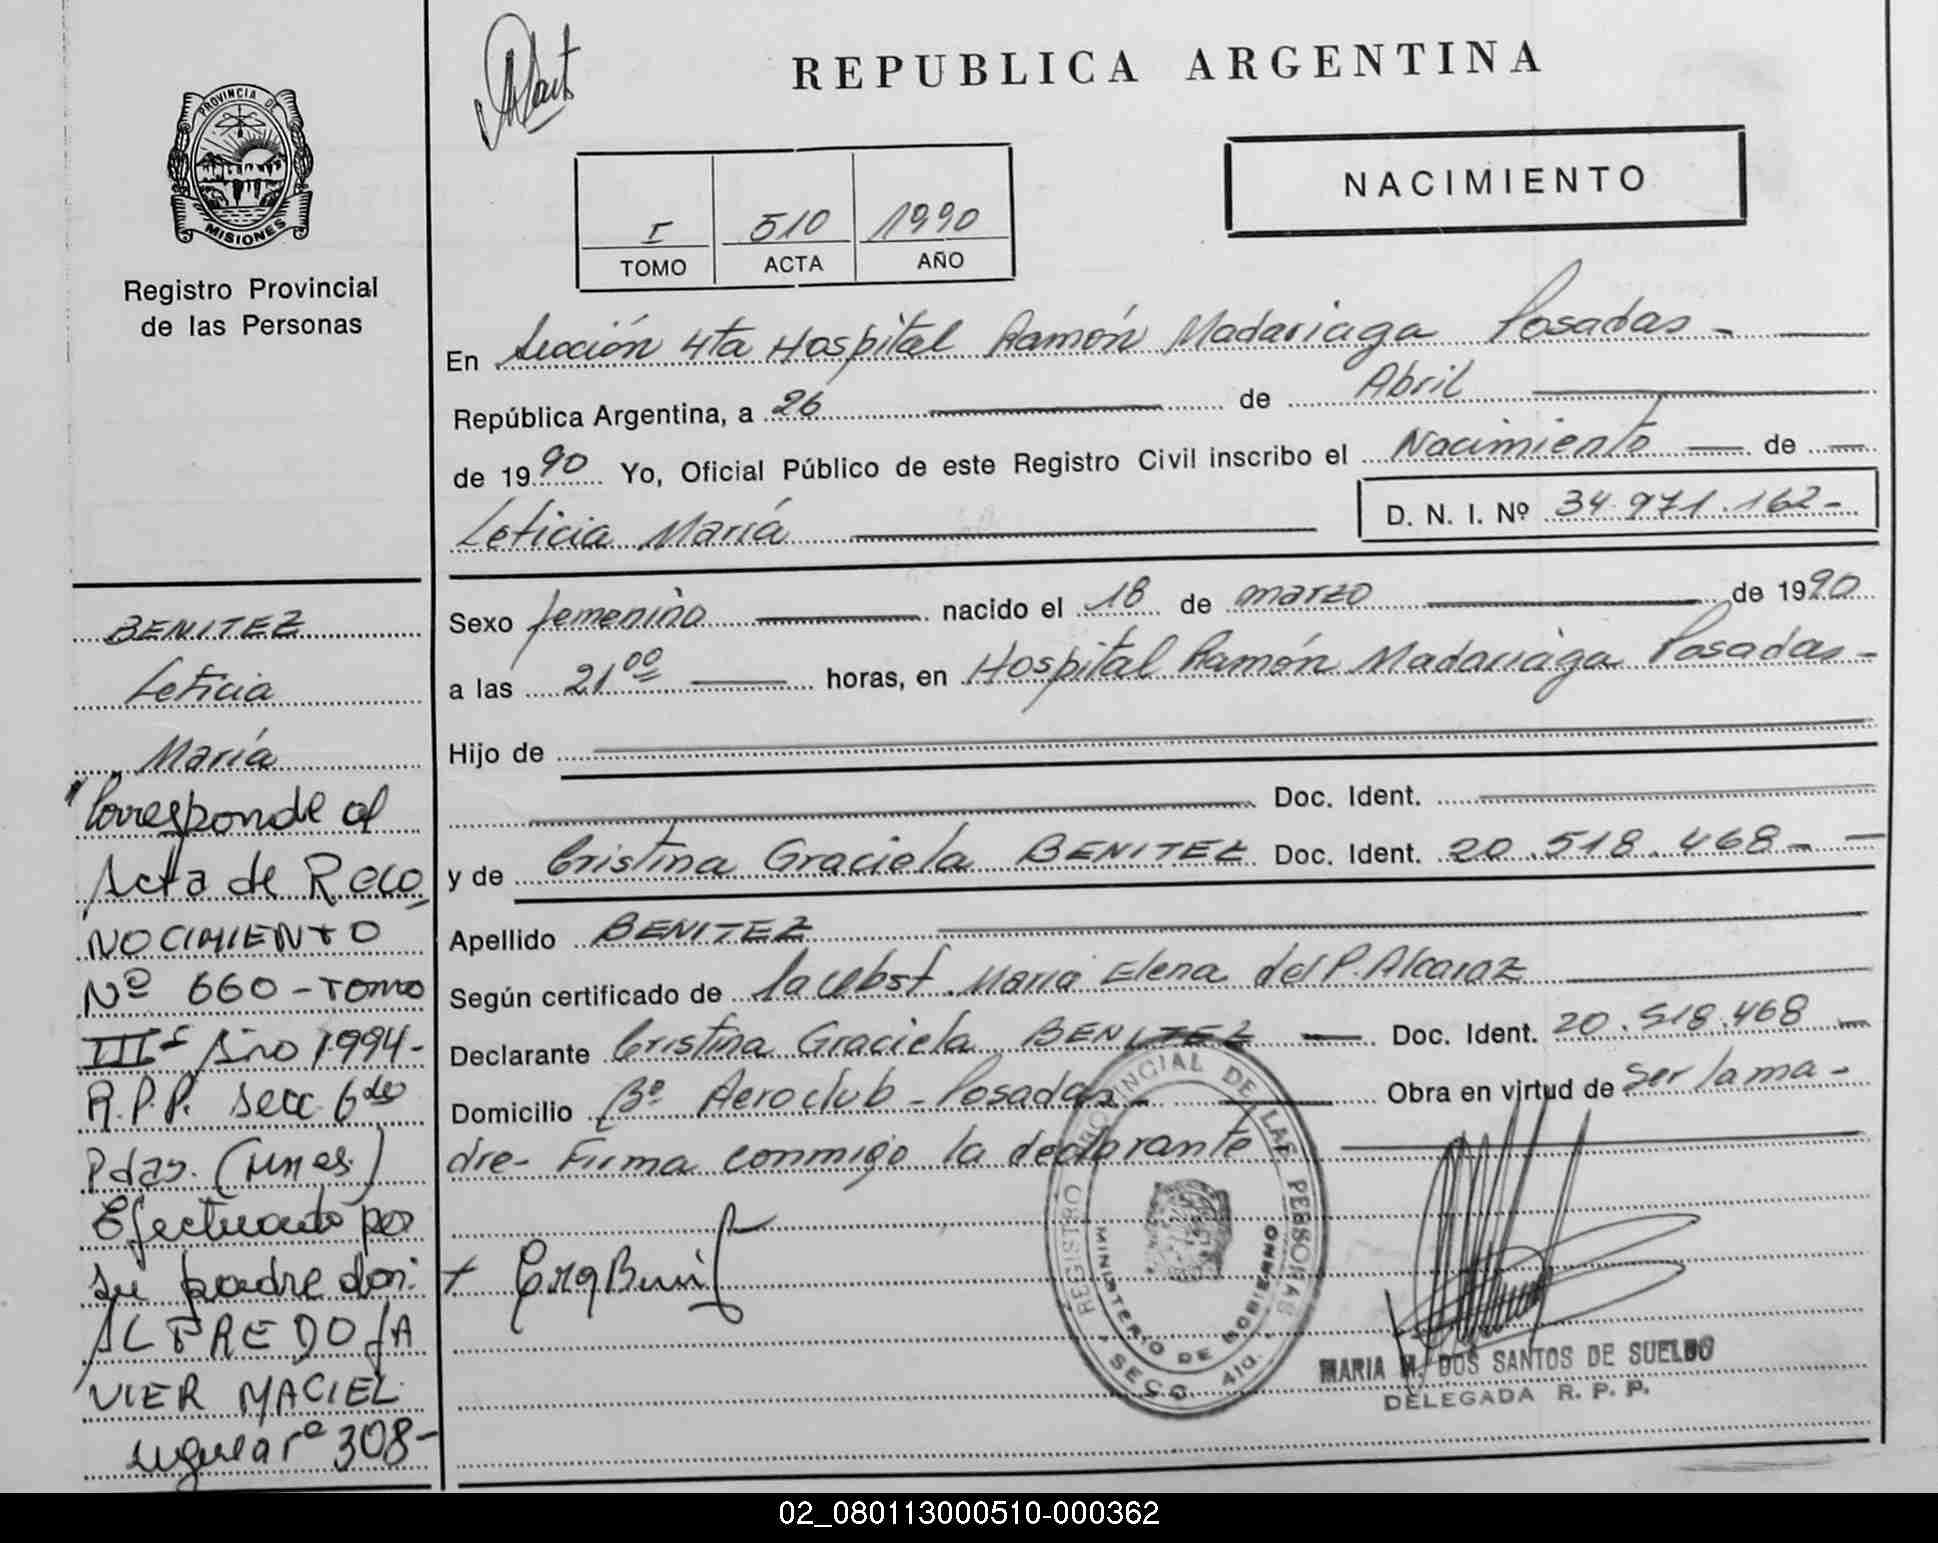 REPUBLICA ARGENTINA
PROVINCIA DE
MISIONES
Registro Provincial
de las Personas
I 510 1990
TOMO ACTA AÑO
NACIMIENTO
En Sección 4ta Hospital Ramón Madariaga Posadas -
República Argentina, a 26 de Abril
de 1990 Yo, Oficial Público de este Registro Civil inscribo el Nacimiento de
Leticia María
D. N. I. Nº 34.971.162-
Sexo femenino nacido el 18 de marzo de 1990
a las 21 00 horas, en Hospital Ramón Madariaga Posadas-
Hijo de
Doc. Ident.
y de Cristina Graciela BENITEZ Doc. Ident. 20.518.468-
Apellido BENITEZ
Según certificado de la obst. María Elena del P. Alcaraz
Declarante Cristina Graciela BENITEZ Doc. Ident. 20.518.468
Domicilio Bº Aeroclub - Posadas - Obra en virtud de ser la ma-
dre- Firma conmigo la declarante
REGISTRO PROVINCIAL DE LAS PERSONAS
MINISTERIO DE GOBIERNO
SECC 4ta.
MARIA M. DOS SANTOS DE SUELDO
DELEGADA R. P. P.
BENITEZ
Leticia
María
Corresponde al
Acta de Reco
NOCIMIENTO
Nº 660 - Tomo
III Año 1994-
R.P.P. Secc. 6
Pdas.
Efectuado por
su padre don:
ALFREDO JA
VIER MACIEL
308-
02_080113000510-000362